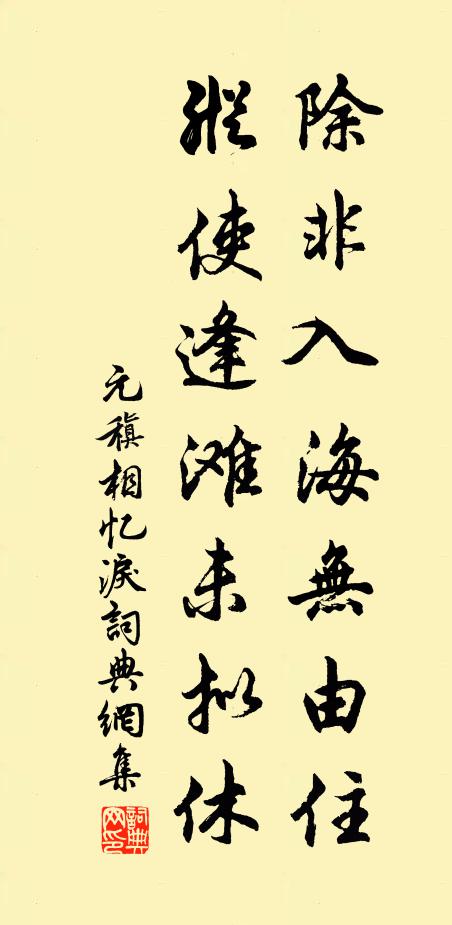 除非入海無由住
縱使逢滩未拟休
元稹相忆淚詞典網集
詞典
网印